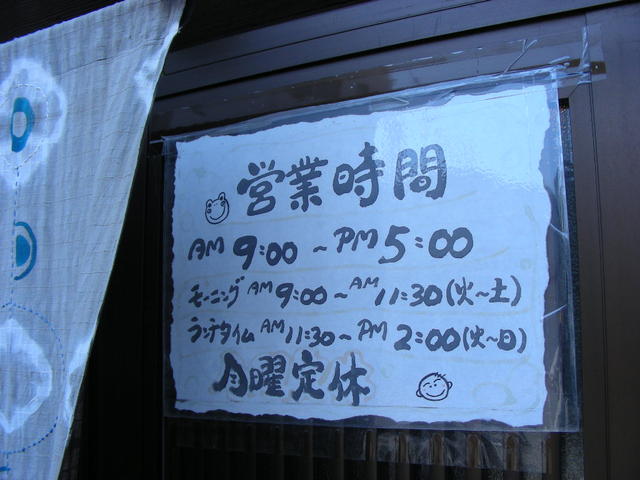 営業時間
AM 9:00 ~ PM 5:00
モーニング AM 9:00 ~ AM 11:30 (火~土)
ランチタイム AM 11:30 ~ PM 2:00 (火~日)
月曜定休